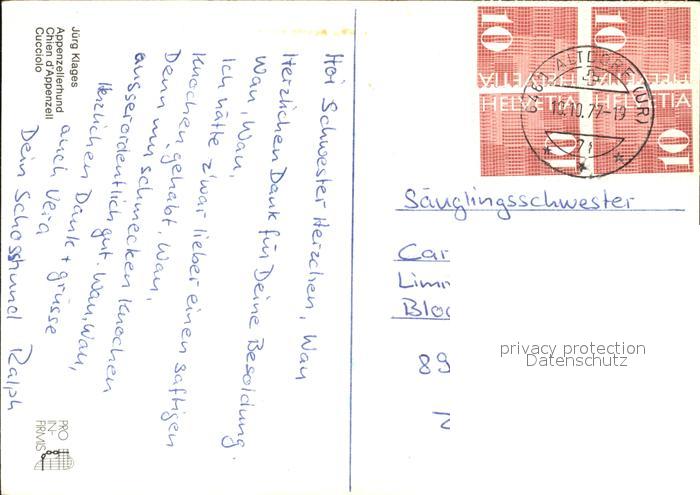 Jürg Klages
Appenzellerhund
Chien d'Appenzell
Cucciolo
Hoi Schwester Herzchen, Wau
Herzlichen Dank für Deine Besoldung.
Wau, Wau,
Ich hätte z'war lieber einen saftigen
Knochen gehabt. Wau,
Denn mir schmecken Knochen
ausserordentlich gut. Wau, Wau,
Herzlichen Dank + grüsse
auch Vera
Dein Schosshund Ralph
PRO
IN-
FIRMIS
10
10
HELVETIA
HELVETIA
HELVETIA
HELVETIA
10
10
ALTDORF (UR)
10.10.77-19
Säuglingsschwester
Car
Limm
Bloc
89
privacy protection
Datenschutz